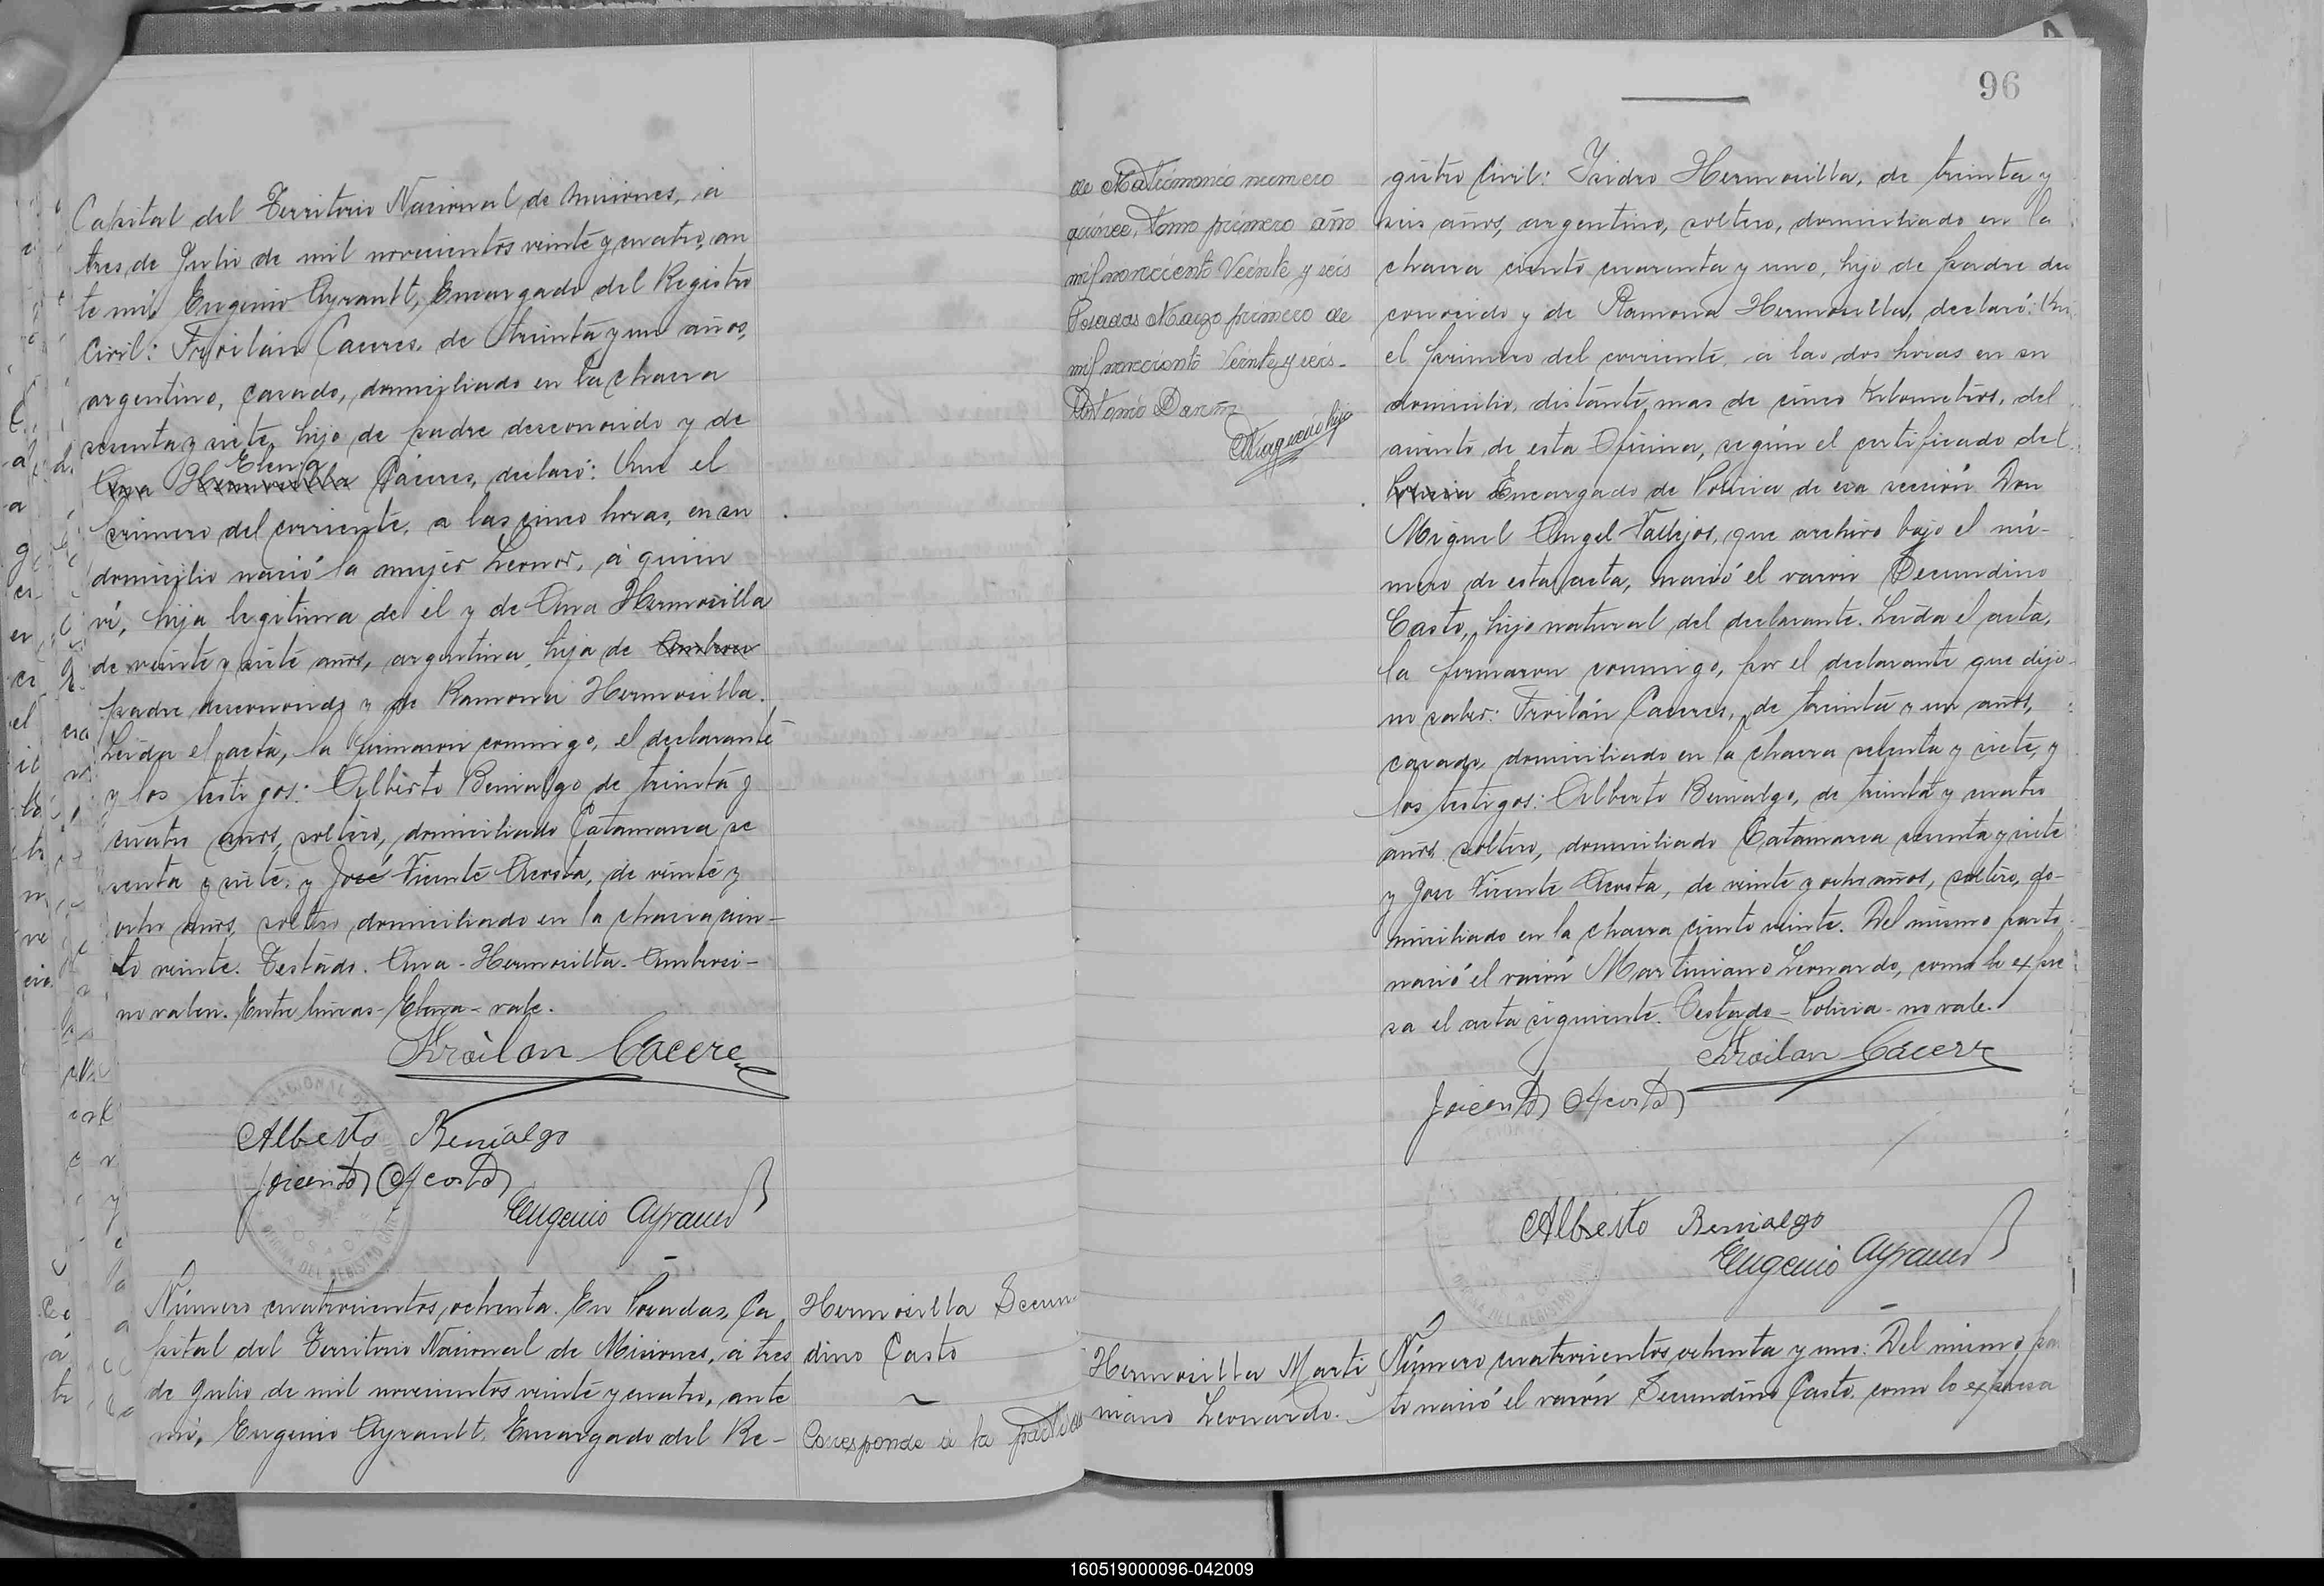 Capital del Territorio Nacional de Misiones, á
tres de Julio de mil novecientos veinte y cuatro, an
te mí, Eugenio Ayrault, Encargado del Registro
Civil: Froilán Caceres, de treinta y un años,
argentino, casado, domiciliado en la chacra
sesenta y siete, hijo de padre desconocido y de
Elena
Ana Hermosilla Cáceres, declaró: Que el
primero del corriente, a las cinco horas, en su
domicilio nació la mujer Leonor, á quien
ví, hija legítima de él y de Ana Hermosilla
de veinte y siete años, argentina, hija de Ambrosi
padre desconocido y de Ramona Hermosilla.
Leída el acta, la firmaron conmigo, el declarante
y los testigos: Alberto Benialgo de treinta y
cuatro años, soltero, domiciliado Catamarca se
senta y siete, y José Vicente Acosta, de veinte y
ocho años, soltero domiciliado en la chacra cien-
to veinte. Testado. Ana - Hermosilla - Ambrosi -
no valen. Entre líneas - Elena - vale.
Froilan Cacere
Alberto Benialgo
Jvicente Acosta
Eugenio Ayrault
Número cuatrocientos ochenta. En Posadas, Ca
pital del Territorio Nacional de Misiones, á tres
de Julio de mil novecientos veinte y cuatro, ante
mí, Eugenio Ayrault, Encargado del Re-
Hermosilla Secun
dino Casto
Corresponde á la partida
96
de Matrimonio numero
quince, Tomo primero año
mil novecientos Veinte y seis
Posadas Marzo primero de
mil novecientos Veinte y seis-
gistro Civil: Isidro Hermosilla, de treinta y
seis años, argentino, soltero, domiciliado en la
chacra ciento cuarenta y uno, hijo de padre des
conocido y de Ramona Hermosilla, declaró: Que
el primero del corriente, á las dos horas en su
domicilio, distante mas de cinco Kilometros, del
asiento de esta Oficina, según el certificado del
Policia Encargado de Policia de esa sección Don
Miguel Angel Vallejos, que archivo bajo el nú-
mero de esta acta, nació el varón Secundino
Casto, hijo natural del declarante. Leída el acta,
la firmaron conmigo, por el declarante que dijo
no saber: Froilán Caceres, de treinta y un años,
casado, domiciliado en la chacra sesenta y siete, y
los testigos: Alberto Benialgo, de treinta y cuatro
años, soltero, domiciliado Catamarca sesenta y siete
y José Vicente Acosta, de veinte y ocho años, soltero, do-
miciliado en la chacra ciento veinte. Del mismo parto
nació el varón Martiniano Leonardo, como lo expre
sa el acta siguiente. Testado - Policia - no vale.
Froilan Cacere
Jvicente Acosta
Alberto Benialgo
Eugenio Ayrault
Hermosilla Marti
niano Leonardo.
Número cuatrocientos ochenta y uno: Del mismo par
to nació el varón Secundino Casto, como lo expresa
160519000096-042009